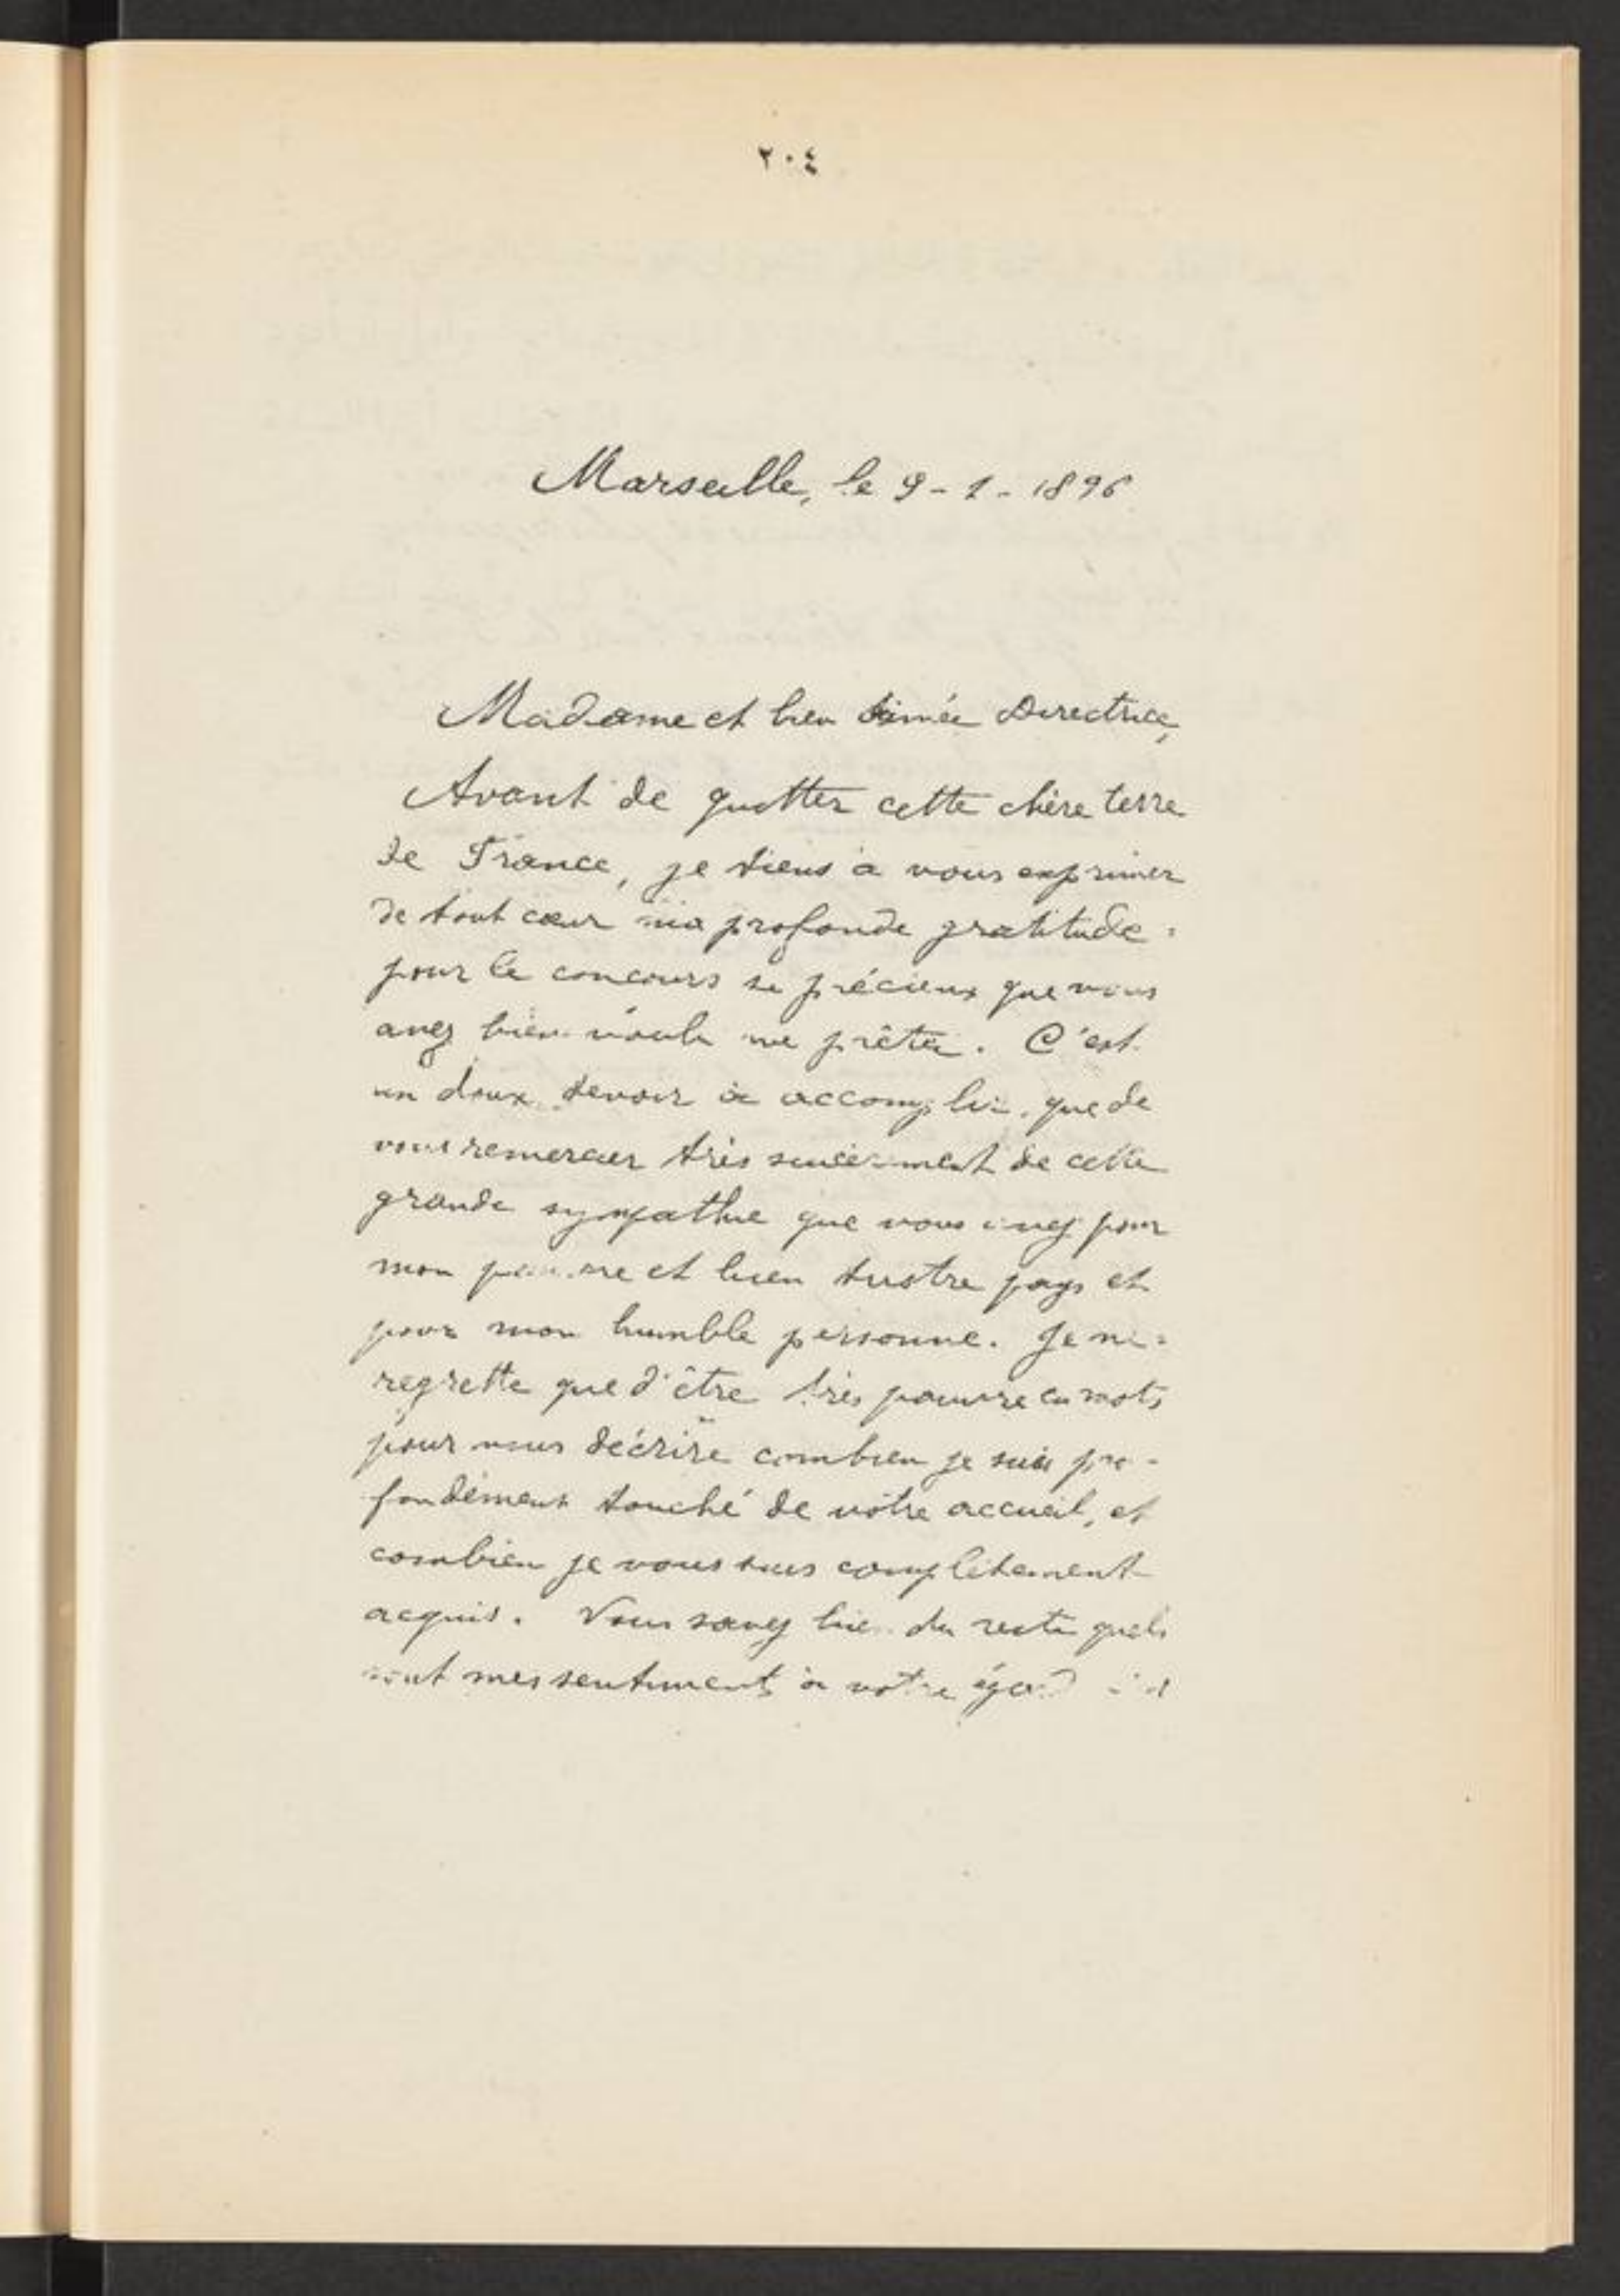 ٢٠٤
Marseille, le 9-1-1896
Madame et bien aimée Directrice,
Avant de quitter cette chère terre
de France, je tiens à vous exprimer
de tout cœur ma profonde gratitude
pour le concours si précieux que vous
avez bien voulu me prêter. C'est
un doux devoir à accomplir que de
vous remercier très sincèrement de cette
grande sympathie que vous avez pour
mon pauvre et bien triste pays et
pour mon humble personne. Je ne
regrette que d'être très pauvre en mots
pour vous décrire combien je suis pro-
fondément touché de votre accueil, et
combien je vous suis complètement
acquis. Vous savez bien du reste quels
sont mes sentiments à votre égard